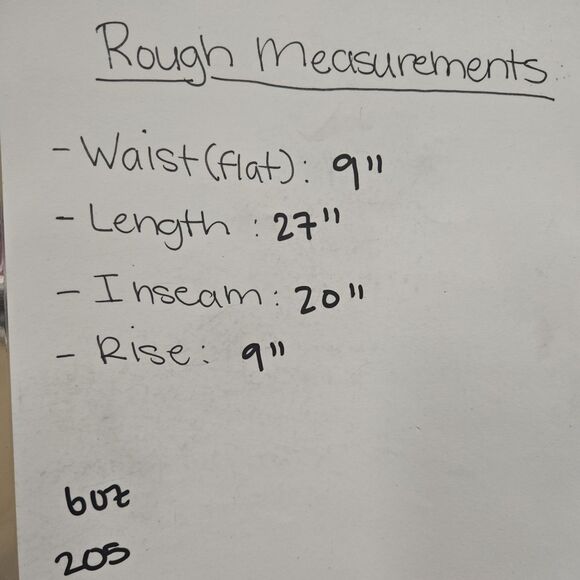 Rough Measurements
- Waist(flat): 9"
- Length : 27"
- Inseam: 20"
- Rise: 9"
6oz
205